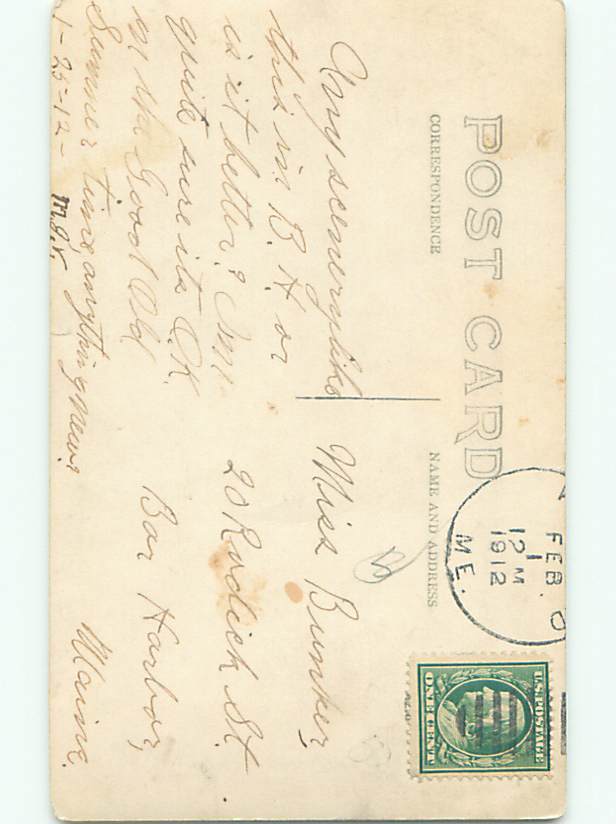 POST CARD
CORRESPONDENCE
NAME AND ADDRESS
FEB
12 M
1912
ME.
U.S. POSTAGE
ONE CENT
Any scenery like
this in B. H. or
is it better? I'm
quite sure its O.K.
in the Good Old
Summer time anything new?
1-25-12- M.J.V.
Miss Bunker,
20 Rodick St.
Bar Harbor,
Maine.